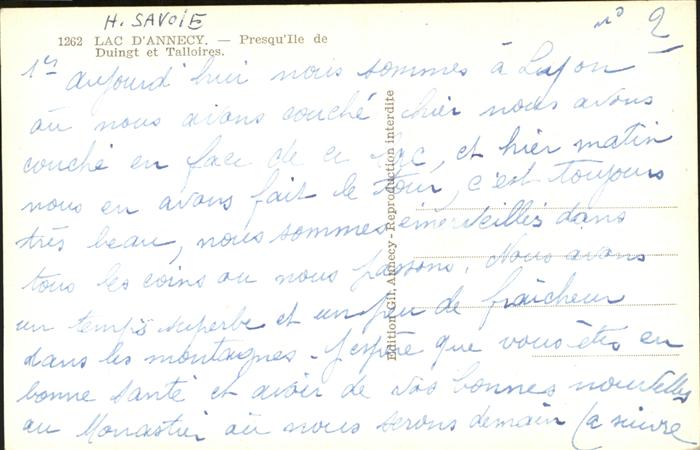 H. SAVOIE
n° 2
1262 LAC D'ANNECY. — Presqu'Ile de
Duingt et Talloires.
aujourd'hui nous sommes à Lyon
où nous avons couché hier nous avons
couché en face de ce lac, et hier matin
nous en avons fait le tour, c'est toujours
très beau, nous sommes émerveillés dans
tous les coins ou nous passons. Nous avons
un temps superbe et un peu de fraîcheur
dans les montagnes. J'espère que vous êtes en
bonne santé et avoir de vos bonnes nouvelles
au Monastier où nous serons demain (a suivre
Edition Gil, Annecy - Reproduction interdite